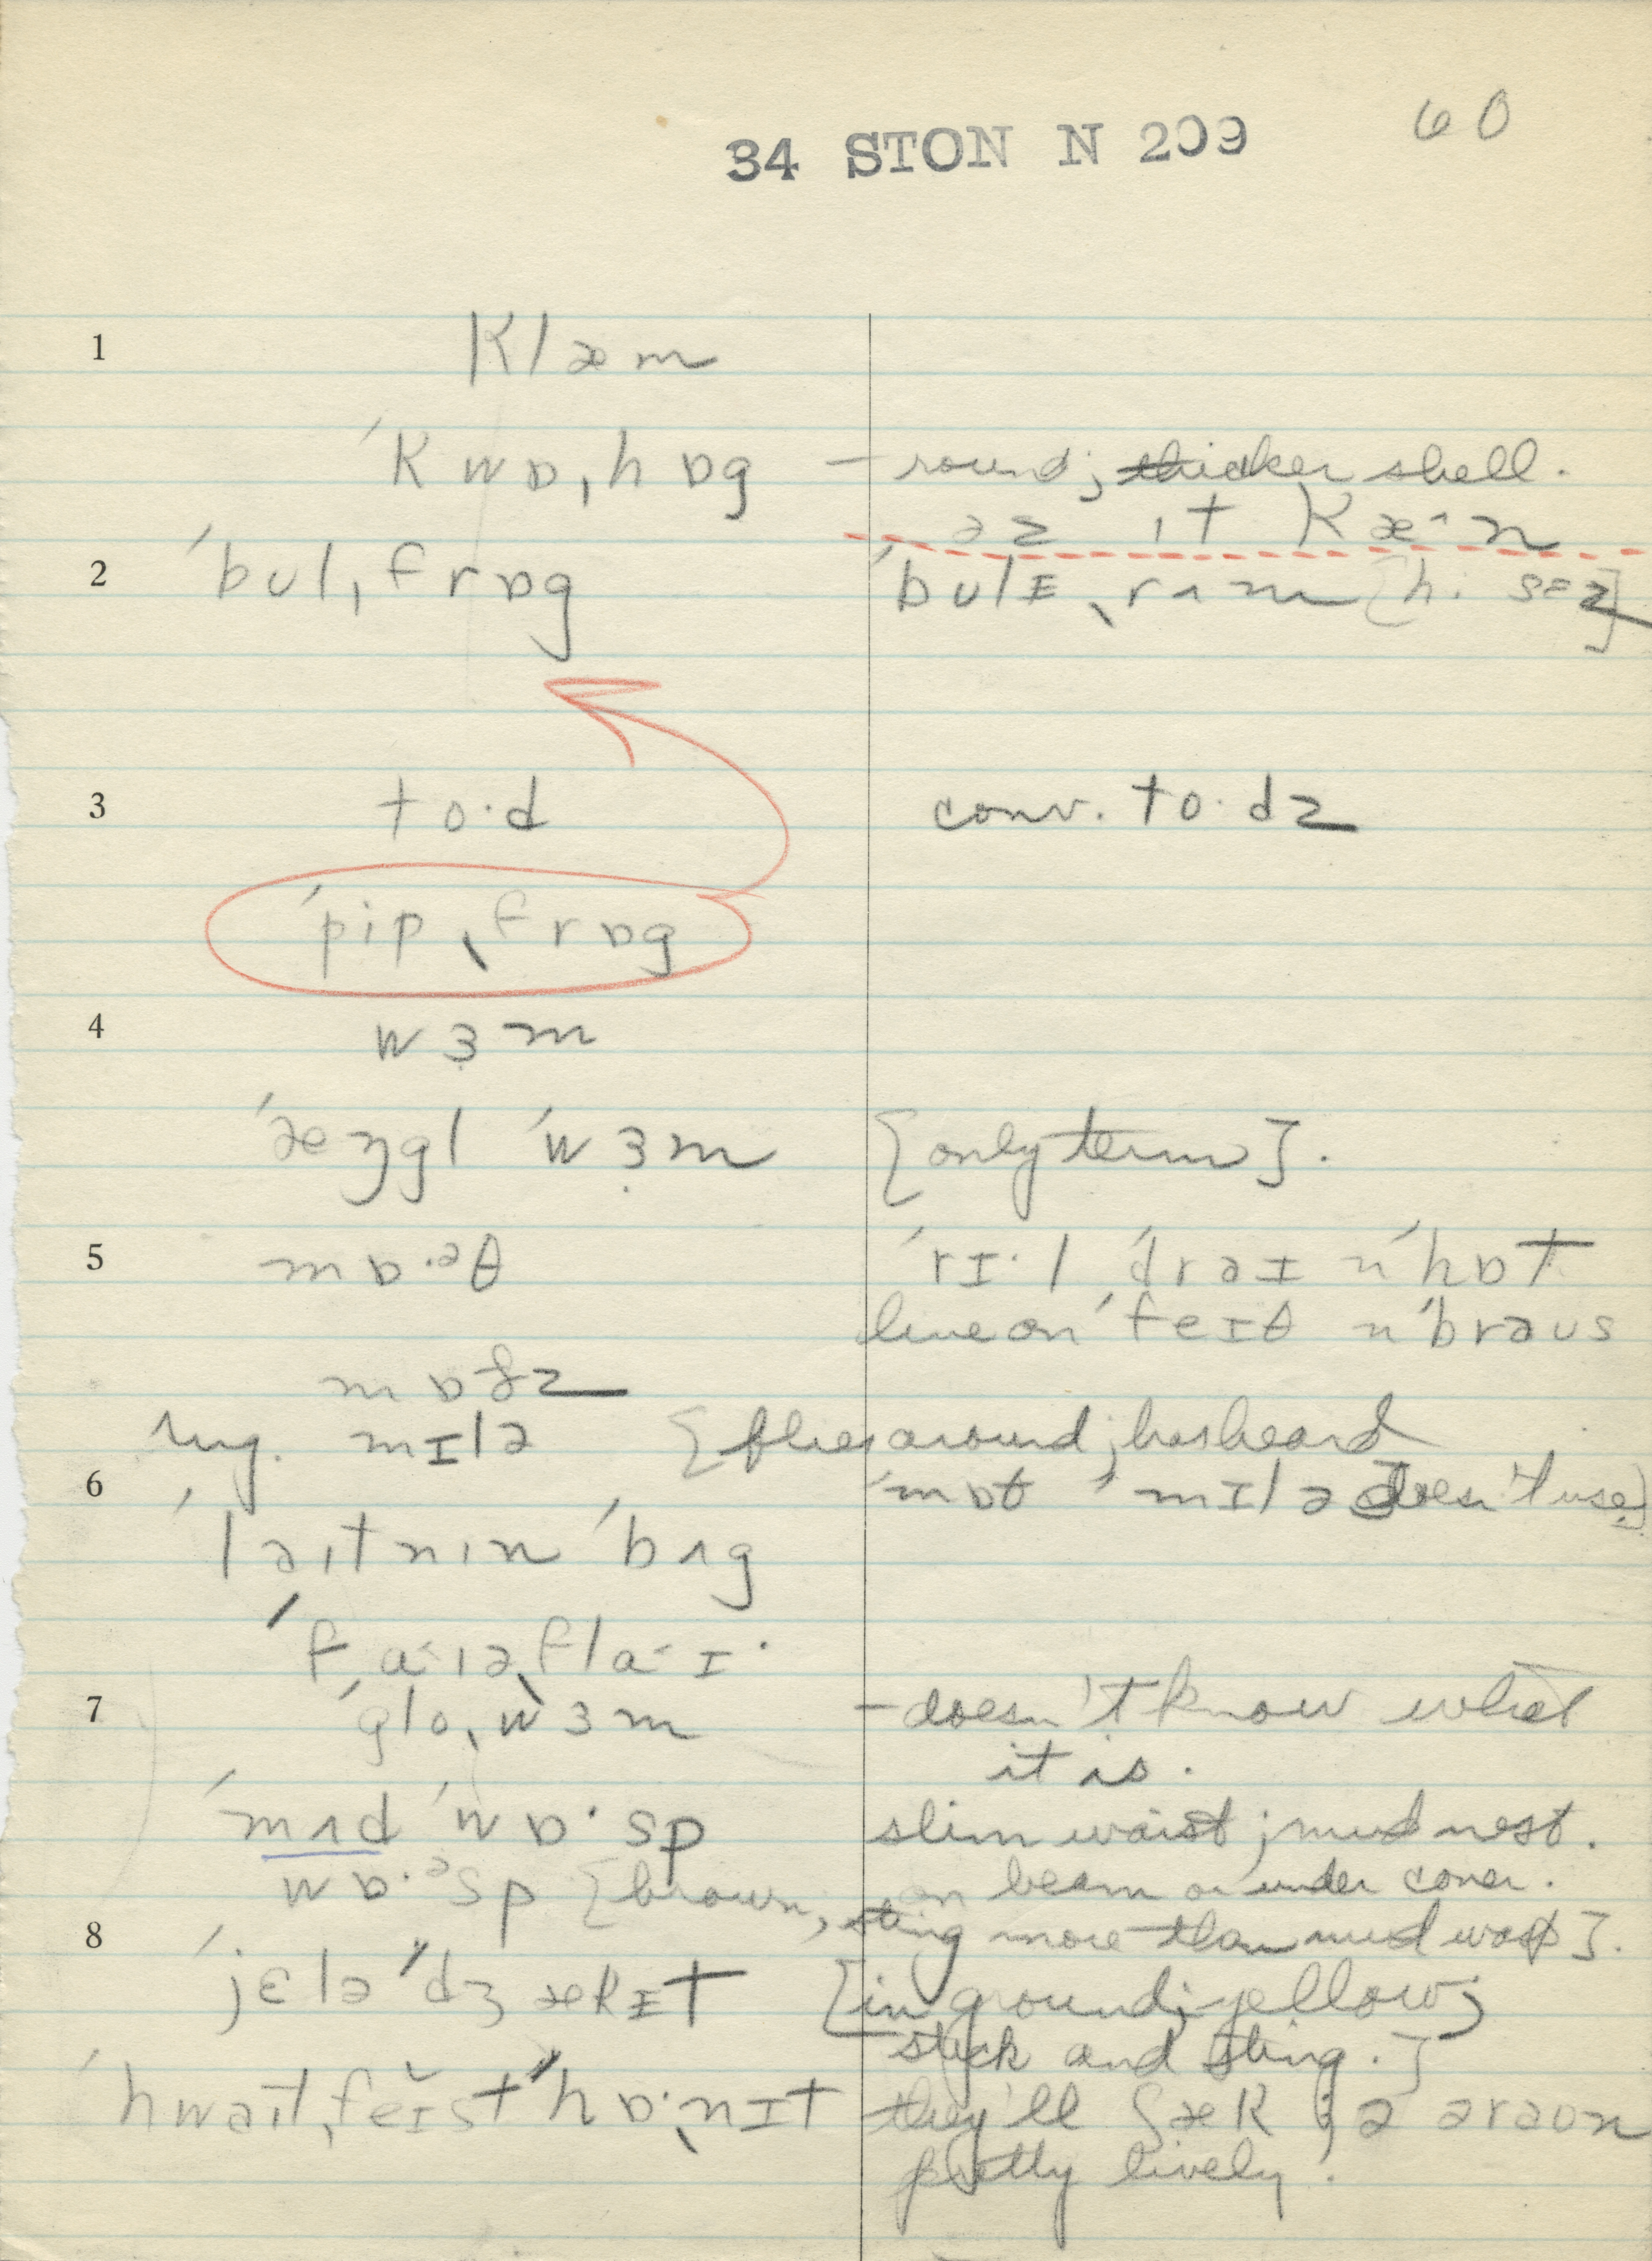 34 STON N 209 60
1 klæm
ˈkwɒˌhɒg – round; thicker shell.
əz ɪt kæˑn
2 ˈbulˌfrɒg ˈbulɪˌrʌm [hi sɛz]
3 to·d conv. to·dz
ˈpipˌfrɒg
4 wɜ̣m
ˈæŋgl ˈwɜ̣m [only term].
5 mɒ·ᵊθ ˈrɪ·l ˈdrəɪ n ˈhɒt
live on ˈfeɪθ n ˈbrəus
mɒðz
sug. mɪlə [flies around; has heard
6 ˈmɒθ ˈmɪlə doesn't use]
ˈləɪtnɪn ˈbʌg
ˈfaˑɪəˌflaˑɪ·
7 ˈgloˌwɜm – doesn't know what
it is.
ˈmʌd ˈwɒ·sp slim waist; mud nest.
on beam or under cover.
wɒ·ᵊsp [brown, sting more than mud wasp].
8 ˈjɛlə ˈdʒækɪt [in ground; yellow;
stick and sting.]
ˈhwəɪtˌfeɪst ˈhɒ·ˌnɪt they'll ʃæk jə əraʊn
pretty lively.